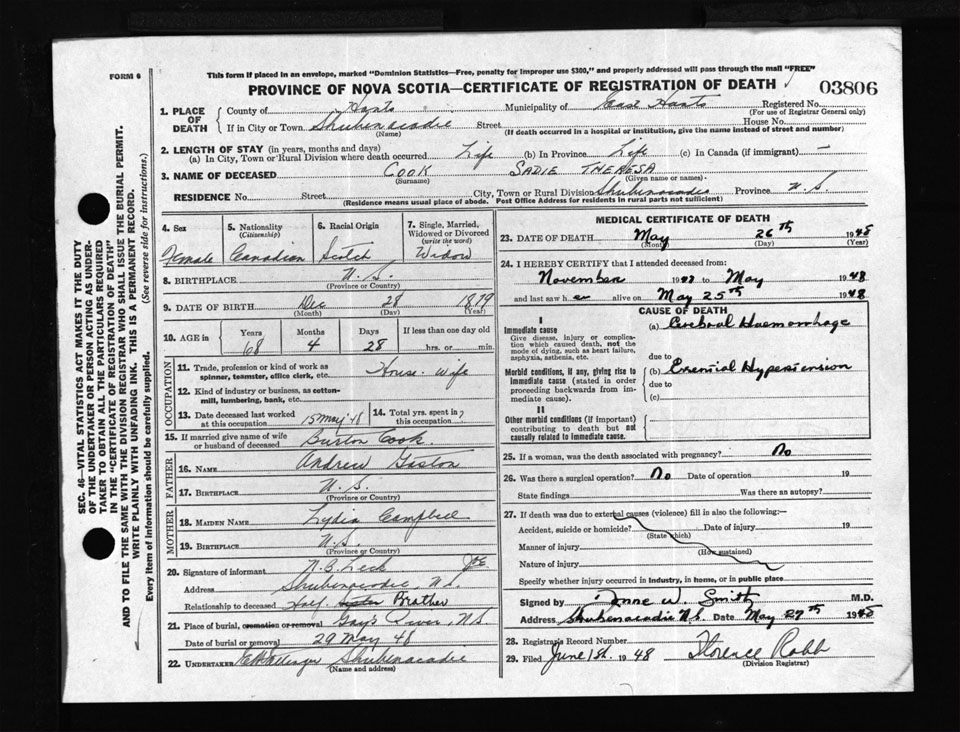 FORM 6
This form if placed in an envelope, marked "Dominion Statistics—Free, penalty for improper use $300," and properly addressed will pass through the mail "FREE"
PROVINCE OF NOVA SCOTIA—CERTIFICATE OF REGISTRATION OF DEATH
03806
1. PLACE OF DEATH
County of Hants Municipality of East Hants Registered No.
(For use of Registrar General only)
If in City or Town Shubenacadie Street House No.
(Name) (If death occurred in a hospital or institution, give the name instead of street and number)
2. LENGTH OF STAY (in years, months and days)
(a) In City, Town or Rural Division where death occurred Life (b) In Province Life (c) In Canada (if immigrant) —
3. NAME OF DECEASED COOK SADIE THERESA
(Surname) (Given name or names)
RESIDENCE No. Street City, Town or Rural Division Shubenacadie Province N.S.
(Residence means usual place of abode. Post Office Address for residents in rural parts not sufficient)
4. Sex
Female
5. Nationality
(Citizenship)
Canadian
6. Racial Origin
Scotch
7. Single, Married, Widowed or Divorced
(write the word)
Widow
8. BIRTHPLACE N.S.
(Province or Country)
9. DATE OF BIRTH Dec 28 1879
(Month) (Day) (Year)
10. AGE in Years Months Days If less than one day old
68 4 28 hrs. or min.
OCCUPATION
11. Trade, profession or kind of work as spinner, teamster, office clerk, etc. House-Wife
12. Kind of industry or business, as cotton-mill, lumbering, bank, etc.
13. Date deceased last worked at this occupation 15 May 48
14. Total yrs. spent in this occupation
15. If married give name of wife or husband of deceased Burton Cook
FATHER
16. NAME Andrew Gaston
17. BIRTHPLACE N.S.
(Province or Country)
MOTHER
18. MAIDEN NAME Lydia Campbell
19. BIRTHPLACE N.S.
(Province or Country)
20. Signature of informant
Address Shubenacadie, N.S.
Relationship to deceased Half Sister Brother
21. Place of burial, cremation or removal Gay's River, N.S.
Date of burial or removal 29 May 48
22. UNDERTAKER Shubenacadie
(Name and address)
MEDICAL CERTIFICATE OF DEATH
23. DATE OF DEATH May 26th 1948
(Month) (Day) (Year)
24. I HEREBY CERTIFY that I attended deceased from:
November 1947 to May 1948
and last saw her alive on May 25th 1948
CAUSE OF DEATH
I
Immediate cause
Give disease, injury or complication which caused death, not the mode of dying, such as heart failure, asphyxia, asthenia, etc.
(a) Cerebral Haemorrhage
due to
Morbid conditions, if any, giving rise to immediate cause (stated in order proceeding backwards from immediate cause).
(b) Essential Hypertension
due to
(c)
II
Other morbid conditions (if important) contributing to death but not causally related to immediate cause.
25. If a woman, was the death associated with pregnancy? No
26. Was there a surgical operation? No Date of operation 19
State findings Was there an autopsy?
27. If death was due to external causes (violence) fill in also the following:—
Accident, suicide or homicide? Date of injury 19
(State which)
Manner of injury
(How sustained)
Nature of injury
Specify whether injury occurred in industry, in home, or in public place
Signed by Smith M.D.
Address Shubenacadie N.S. Date May 27th 1948
28. Registrar's Record Number
29. Filed June 1st 1948 Florence Robb
(Division Registrar)
SEC. 46—VITAL STATISTICS ACT MAKES IT THE DUTY
OF THE UNDERTAKER OR PERSON ACTING AS UNDER-
TAKER TO OBTAIN ALL THE PARTICULARS REQUIRED
IN THE "CERTIFICATE OF REGISTRATION OF DEATH"
AND TO FILE THE SAME WITH THE DIVISION REGISTRAR WHO SHALL ISSUE THE BURIAL PERMIT.
WRITE PLAINLY WITH UNFADING INK. THIS IS A PERMANENT RECORD.
Every item of information should be carefully supplied. (See reverse side for instructions.)